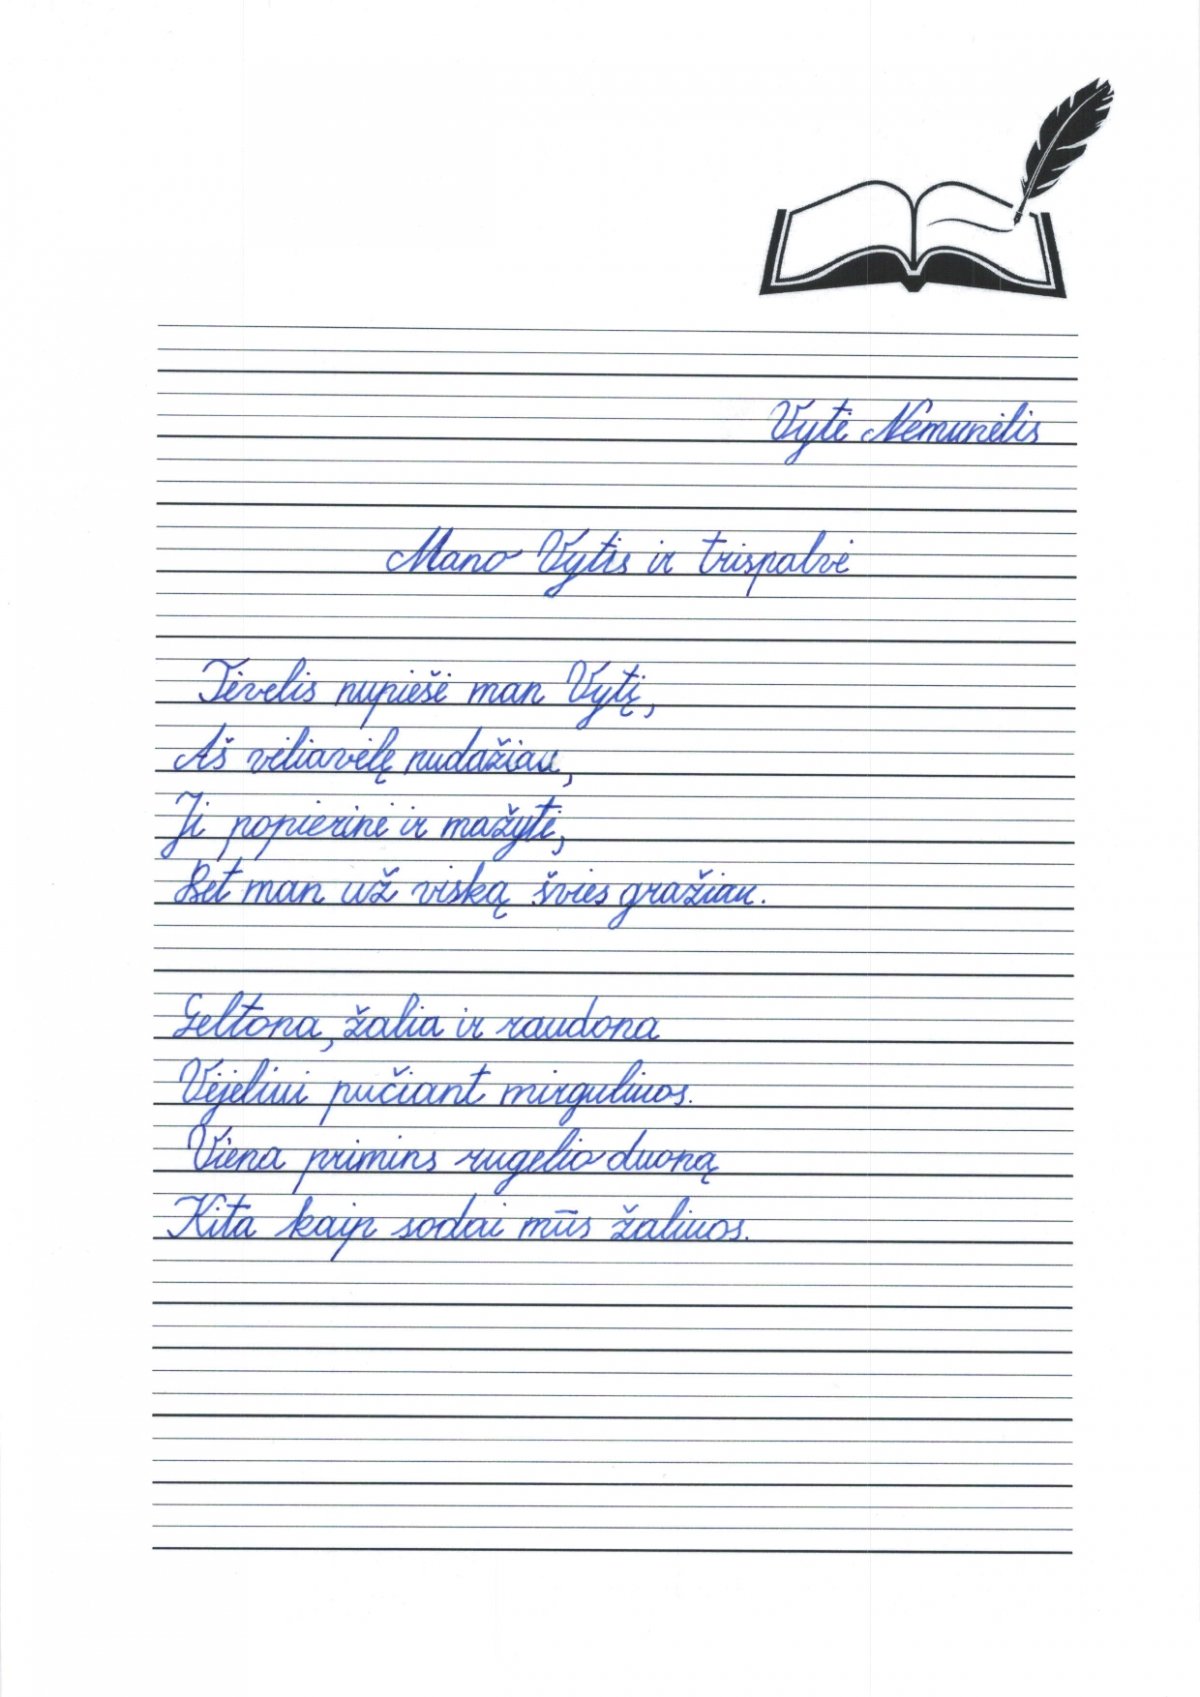 Vytė Nemunėlis
Mano Vytis ir trispalvė
Tėvelis nupiešė man Vytį,
Aš vėliavėlę nudažiau,
Ji popierinė ir mažytė,
Bet man už viską švies gražiau.
Geltona, žalia ir raudona
Vėjeliui pučiant mirguliuos.
Viena primins rugelio duoną
Kita kaip sodai mūs žaliuos.